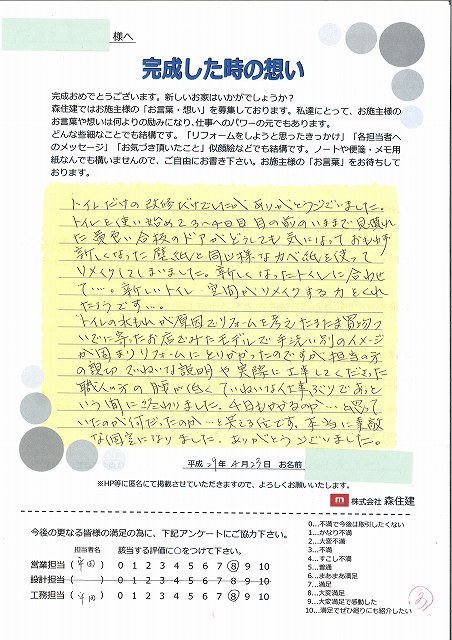 様へ
完成した時の想い
完成おめでとうございます。新しいお家はいかがでしょうか?
森住建ではお施主様の「お言葉・想い」を募集しております。私達にとって、お施主様の
お言葉や想いは何よりの励みになり、仕事へのパワーの元でもあります。
どんな些細なことでも結構です。「リフォームをしようと思ったきっかけ」「各担当者へ
のメッセージ」「お気づき頂いたこと」似顔絵などでも結構です。ノートや便箋・メモ用
紙なんでも構いませんので、ご自由にお書き下さい。お施主様の「お言葉」をお待ちして
おります。
トイレだけの改修だけでしたが ありがとうございました。
トイレを使い始めて3〜4日目 目の前のいままで見慣れ
た黄色い合板のドアがどうしても気になって おもわず
新しくなった壁紙と同じ様なカベ紙を使って
リメイクしてしまいました。新しくなったトイレに合わせ
て…。新しいトイレ空間がリメイクする力をくれ
たようです…。
トイレの水もれが原因でリフォームを考え たまたま買物つ
いでに寄ったお店でみたモデルで手洗い別のイメージ
が固まりリフォームにとりかかったのですが 担当の方
の親切でていねいな説明や実際に工事してくださった
職人の方の腰が低くていねいな仕事ぶりであっと
いう間に終わりました。4日もかかるの…と思って
いたのが何だったのか…と笑える位です。本当に素敵
な個室になりました。ありがとうございました。
平成 29年 4月23日 お名前
※HP等に匿名にて掲載させていただきますので、よろしくお願いいたします。
m 株式会社 森住建
今後の更なる皆様の満足の為に、下記アンケートにご協力下さい。
担当者名 該当する評価に○をつけて下さい。
営業担当 ( 半田 ) 0 1 2 3 4 5 6 7 8 9 10
設計担当 ( ) 0 1 2 3 4 5 6 7 8 9 10
工務担当 ( 半田 ) 0 1 2 3 4 5 6 7 8 9 10
0…不満で今後は取引したくない
1…かなり不満
2…大変不満
3…不満
4…すこし不満
5…普通
6…まあまあ満足
7…満足
8…大変満足
9…大変満足で感動した
10…満足でぜひ廻りにも紹介したい